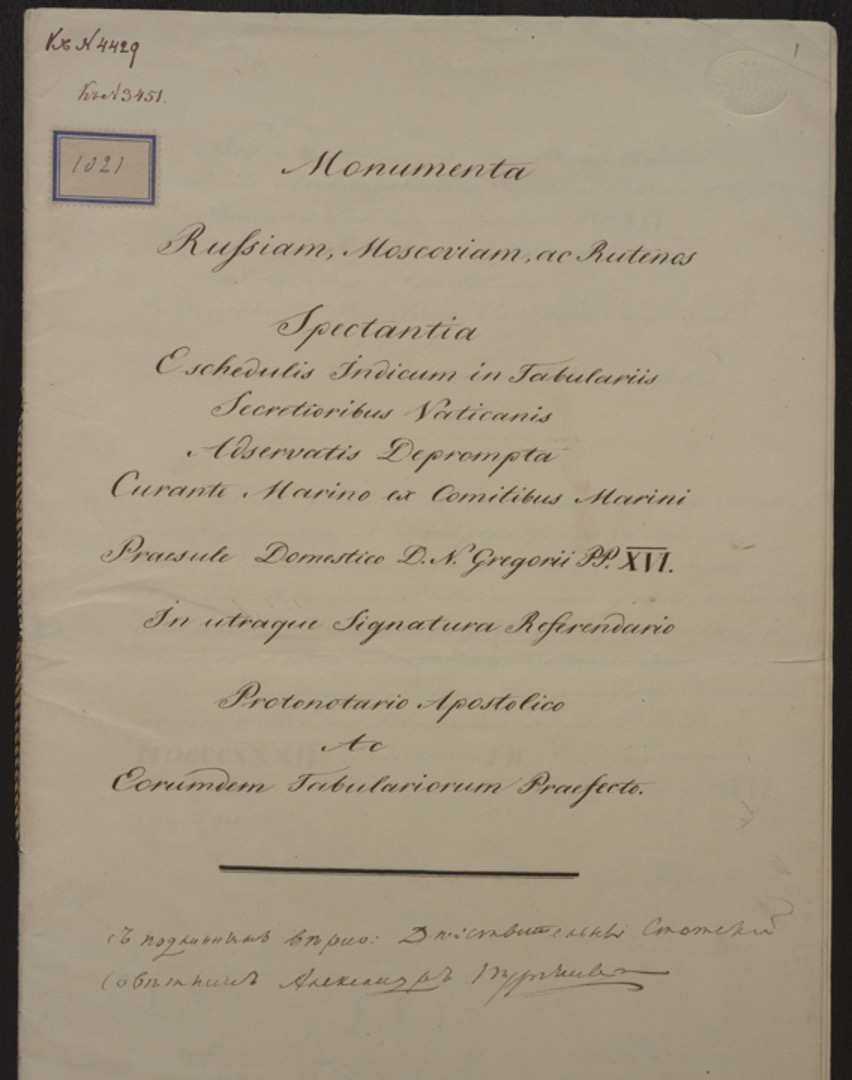 Къ N 4429
Къ N 3451.
1
1021
Monumenta
Rußiam, Moscoviam, ac Rutenos
Spectantia
E schedulis Indicum in Tabulariis
Secretioribus Vaticanis
Adservatis Deprompta
Curante Marino ex Comitibus Marini
Praesule Domestico D. N. Gregorii PP. XVI.
In utraque Signatura Referendario
Protonotario Apostolico
Ac
Eorumdem Tabulariorum Praefecto.
съ подлиннымъ вѣрно: Дѣйствительный Статскій
Совѣтникъ Александръ